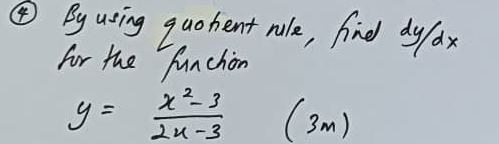 ④ By using quotient rule, find dy/dx
for the function
y = x² - 3 / 2x - 3 (3m)